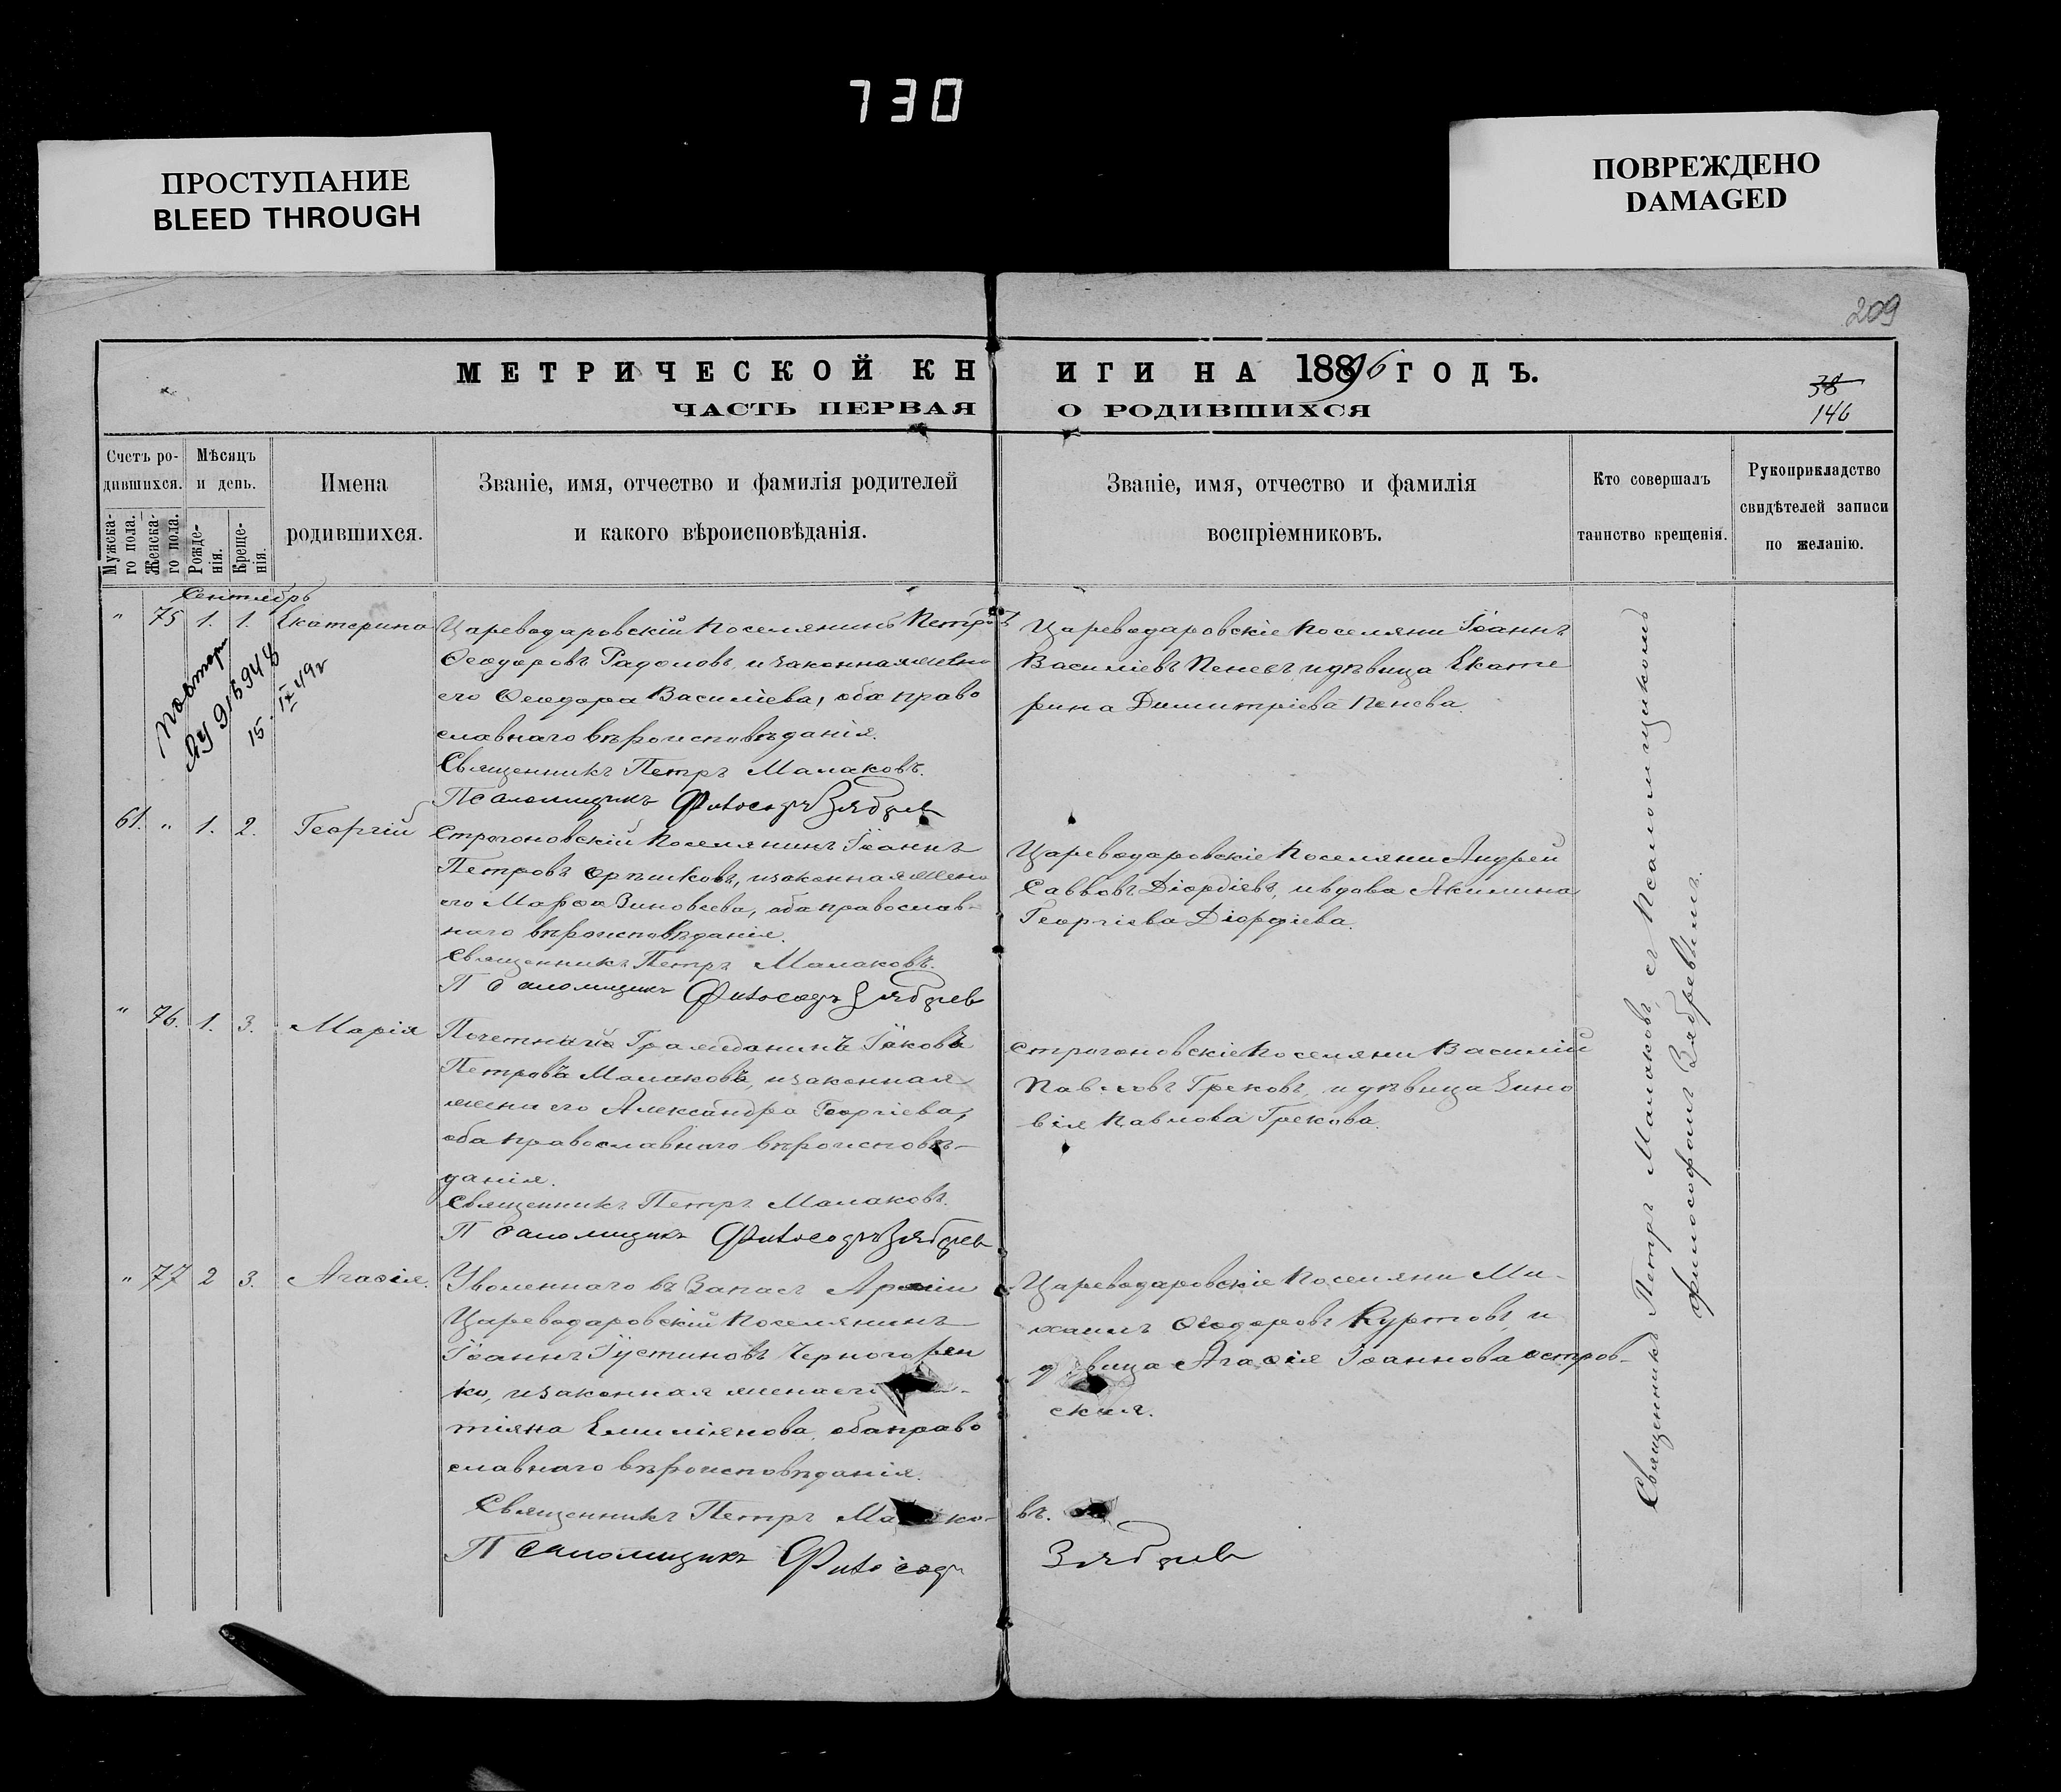 730
ПРОСТУПАНИЕ
BLEED THROUGH
ПОВРЕЖДЕНО
DAMAGED
209
МЕТРИЧЕСКОЙ КНИГИ НА 1896 ГОДЪ.
ЧАСТЬ ПЕРВАЯ О РОДИВШИХСЯ
38
146
Счетъ ро-
дившихся.
Мужска-
го пола.
Женска-
го пола.
Мѣсяцъ
и день.
Рожде-
нія.
Креще-
нія.
Имена
родившихся.
Званіе, имя, отчество и фамилія родителей
и какого вѣроисповѣданія.
Званіе, имя, отчество и фамилія
воспріемниковъ.
Кто совершалъ
таинство крещенія.
Рукоприкладство
свидѣтелей записи
по желанію.
Сентябрь
" 75 1. 1. Екатерина
Цареводаровскій поселянинъ Петръ
Ѳеодоровъ Радоловъ, и законная жена
его Ѳеодора Василіева, оба право
славнаго вѣроисповѣданія.
Священникъ Петръ Малаковъ.
Псаломщикъ Философъ Зябрев
Цареводаровскіе поселяни Іоаннъ
Василіевъ Пеневъ, и дѣвица Екате
рина Димитріева Пенева.
15 IX 49г
61. " 1. 2. Георгій
Строгоновскій поселянинъ Іоаннъ
Петровъ, и законная жена
его Марѳа Зиновеева, оба православ-
наго вѣроисповѣданія.
Священникъ Петръ Малаковъ.
Псаломщикъ Философъ Зябрев
Цареводаровскіе поселяни Андрей
Саввовъ Діордіевъ, и вдова Акилина
Георгіева Діордіева.
" 76. 1. 3. Марія
Гражданинъ Іаковъ
Петровъ Малаковъ, и законная
жена его Александра Георгіева,
оба православнаго вѣроисповѣ-
данія.
Священникъ Петръ Малаковъ.
Псаломщикъ Философъ Зябрев
Строгоновскіе поселяни Василій
Павловъ Грековъ, и дѣвица Зино
вія Павлова Грекова.
" 77 2 3. Агаѳія.
Уволеннаго въ Запасъ Арміи
Цареводаровскій поселянинъ
Іоаннъ Іустиновъ Черногорен
ко, и законная жена его
тіяна Емиліянова, оба право
славнаго вѣроисповѣданія.
Священникъ Петръ Малаковъ.
Псаломщикъ Философъ Зябрев
Цареводаровскіе поселяни Ми-
хаилъ Ѳеодоровъ Куртовъ, и
дѣвица Агаѳія Іоаннова Остров-
ская.
Священникъ Петръ Малаковъ, съ Псаломщикомъ
Философомъ Зябревымъ.